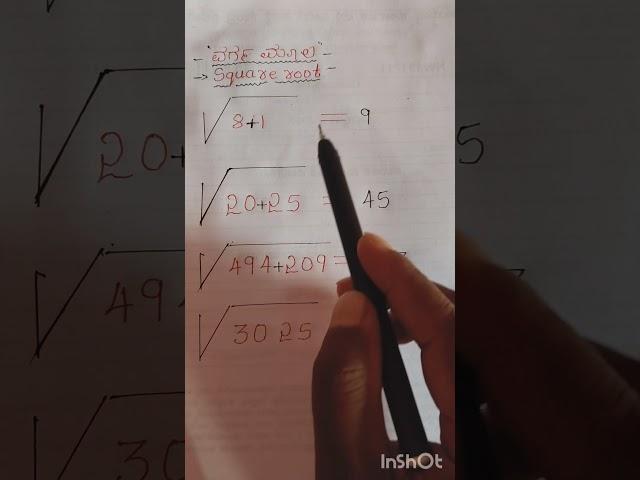 - "ವರ್ಗ ಮೂಲ" -
→ Square root -
√8+1 = 9
√20+25 = 45
√494+209 =
√3025
InShOt